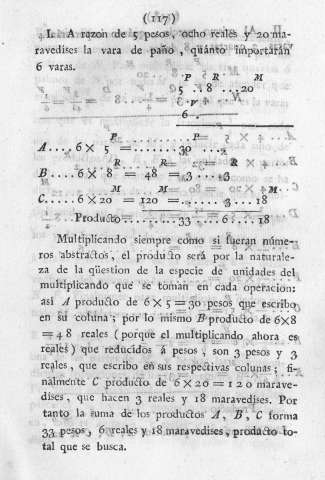 (117)
I. A razon de 5 pesos, ocho reales y 20 ma-
ravedises la vara de paño, quánto importarán
6 varas.
P R M
5 . 8 ...20
6 v
6 .
P P
A....6 X 5 =.......30 ...
R R P R
B....6 X 8 = 48 =...3 ...3
M M R M
C.....6 X 20 = 120 =.......3 ...18
Producto...........33 ....6.....18
Multiplicando siempre como si fueran núme-
ros abstractos, el producto será por la naturale-
za de la qüestion de la especie de unidades del
multiplicando que se toman en cada operacion:
asi A producto de 6 X 5 = 30 pesos que escribo
en su coluna; por lo mismo B producto de 6X8
= 48 reales (porque el multiplicando ahora es
reales) que reducidos á pesos, son 3 pesos y 3
reales, que escribo en sus respectivas colunas; fi-
nalmente C producto de 6 X 20 = 120 marave-
dises, que hacen 3 reales y 18 maravedises. Por
tanto la suma de los productos A, B, C forma
33 pesos, 6 reales y 18 maravedises, producto to-
tal que se busca.